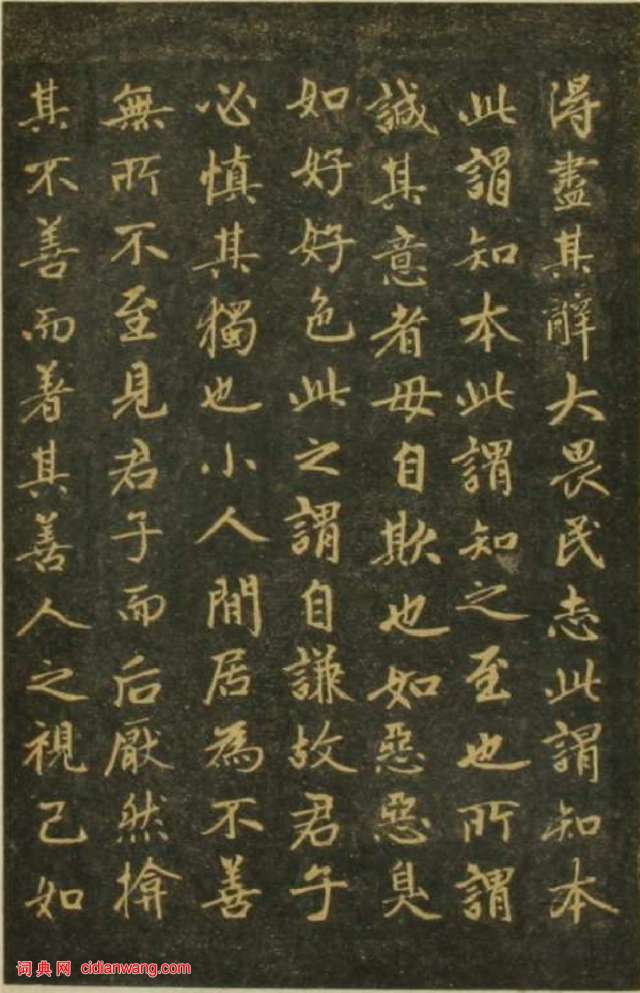 得盡其辭大畏民志此謂知本
此謂知本此謂知之至也所謂
誠其意者毋自欺也如惡惡臭
如好好色此之謂自謙故君子
必慎其獨也小人閒居為不善
無所不至見君子而后厭然揜
其不善而著其善人之視己如
词典网 cidianwang.com